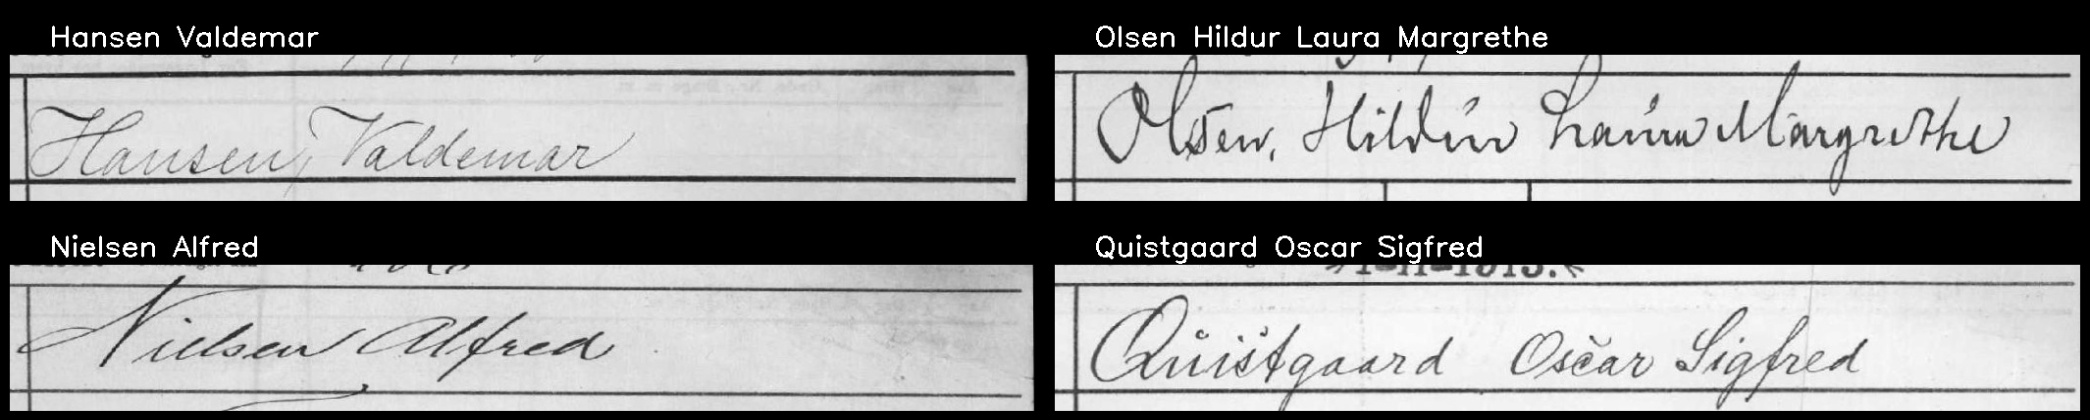 Hansen Valdemar
Hansen, Valdemar
Olsen Hildur Laura Margrethe
Olsen, Hildur Laura Margrethe
Nielsen Alfred
Nielsen Alfred
Quistgaard Oscar Sigfred
Quistgaard Oscar Sigfred